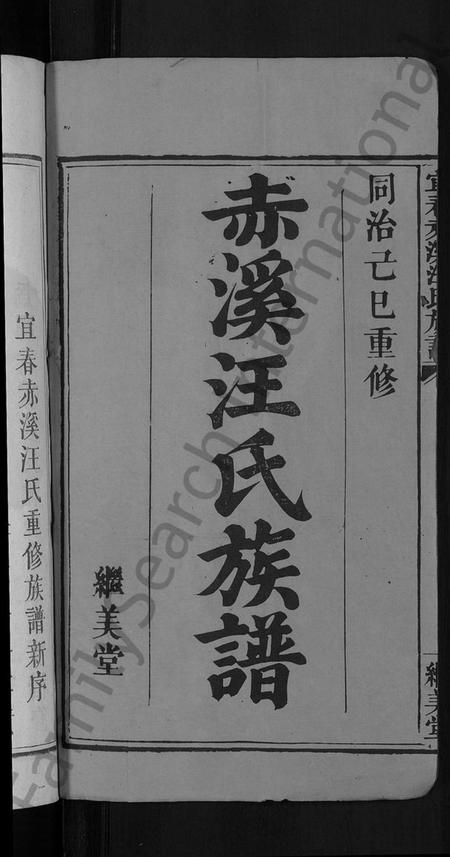 宜春赤溪汪氏族譜
繼美堂
同治己巳重修
赤溪汪氏族譜
繼美堂
宜春赤溪汪氏重修族譜新序
FamilySearch International